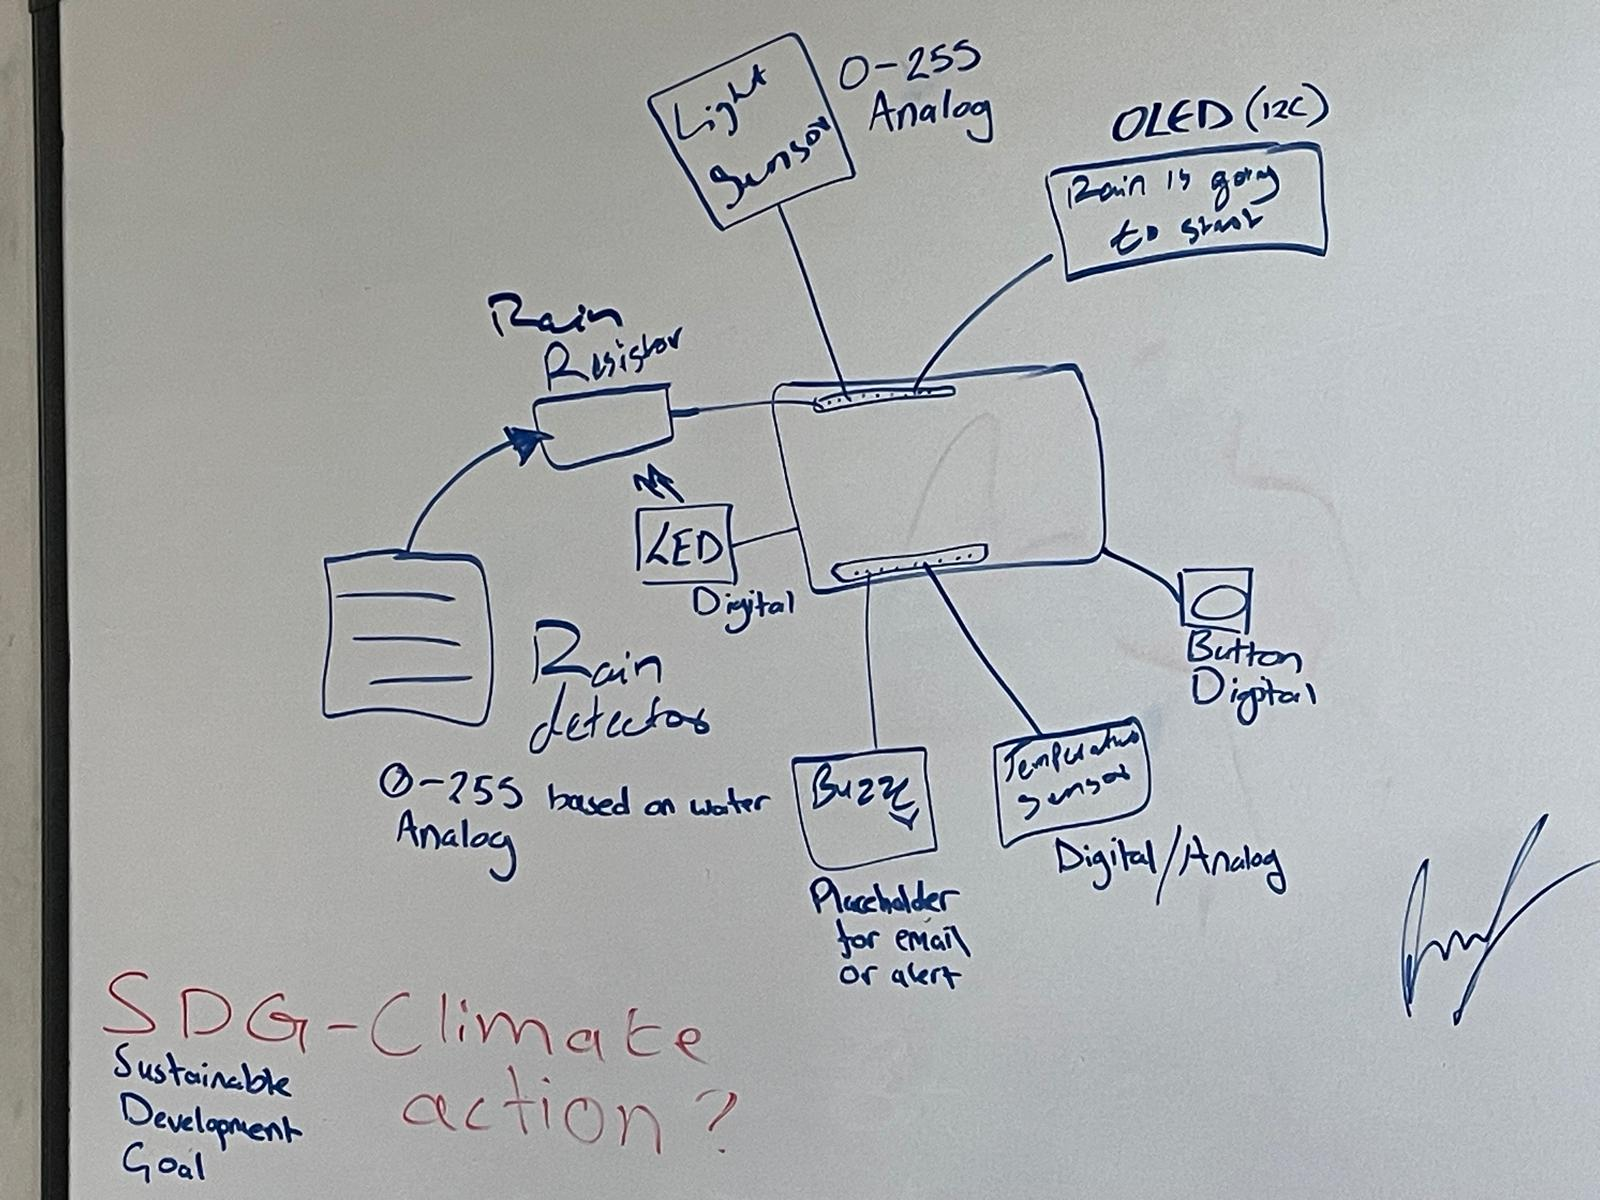 Light
Sensor
0-255
Analog
OLED (I2C)
Rain is going
to start
Rain
Resistor
LED
Digital
Rain
detector
0-255 based on water
Analog
Button
Digital
Buzze
r
Placeholder
for email
or alert
Temperature
Sensor
Digital/Analog
SDG-Climate
action?
Sustainable
Development
Goal